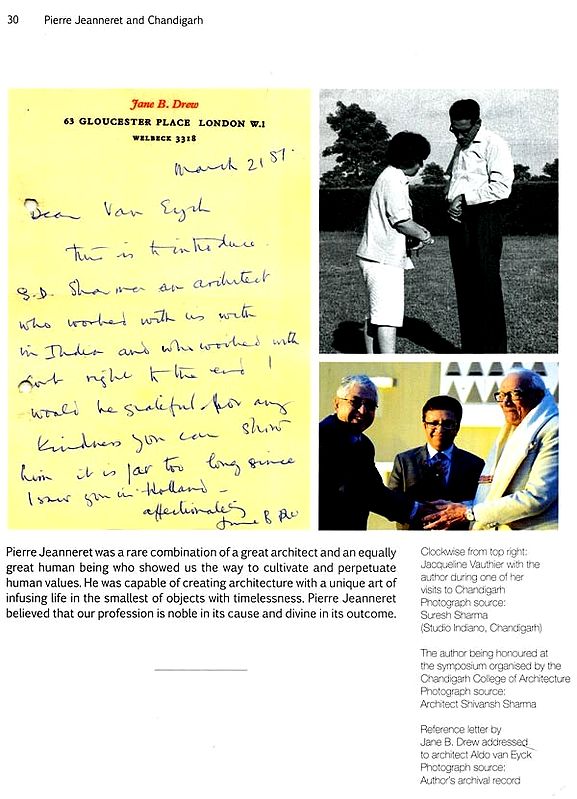 30 Pierre Jeanneret and Chandigarh
Jane B. Drew
63 GLOUCESTER PLACE LONDON W.1
WELBECK 3318
March 21st.
Dear Van Eyck
This is to introduce
S.D. Sharma an architect
who worked with us with
in India and who worked with
right to the end I
would be grateful for any
kindness you can show
him it is far too long since
I saw you in Holland –
affectionately
Jane B Drew
Pierre Jeanneret was a rare combination of a great architect and an equally
great human being who showed us the way to cultivate and perpetuate
human values. He was capable of creating architecture with a unique art of
infusing life in the smallest of objects with timelessness. Pierre Jeanneret
believed that our profession is noble in its cause and divine in its outcome.
Clockwise from top right:
Jacqueline Vauthier with the
author during one of her
visits to Chandigarh
Photograph source:
Suresh Sharma
(Studio Indiano, Chandigarh)
The author being honoured at
the symposium organised by the
Chandigarh College of Architecture
Photograph source:
Architect Shivansh Sharma
Reference letter by
Jane B. Drew addressed
to architect Aldo van Eyck
Photograph source:
Author's archival record